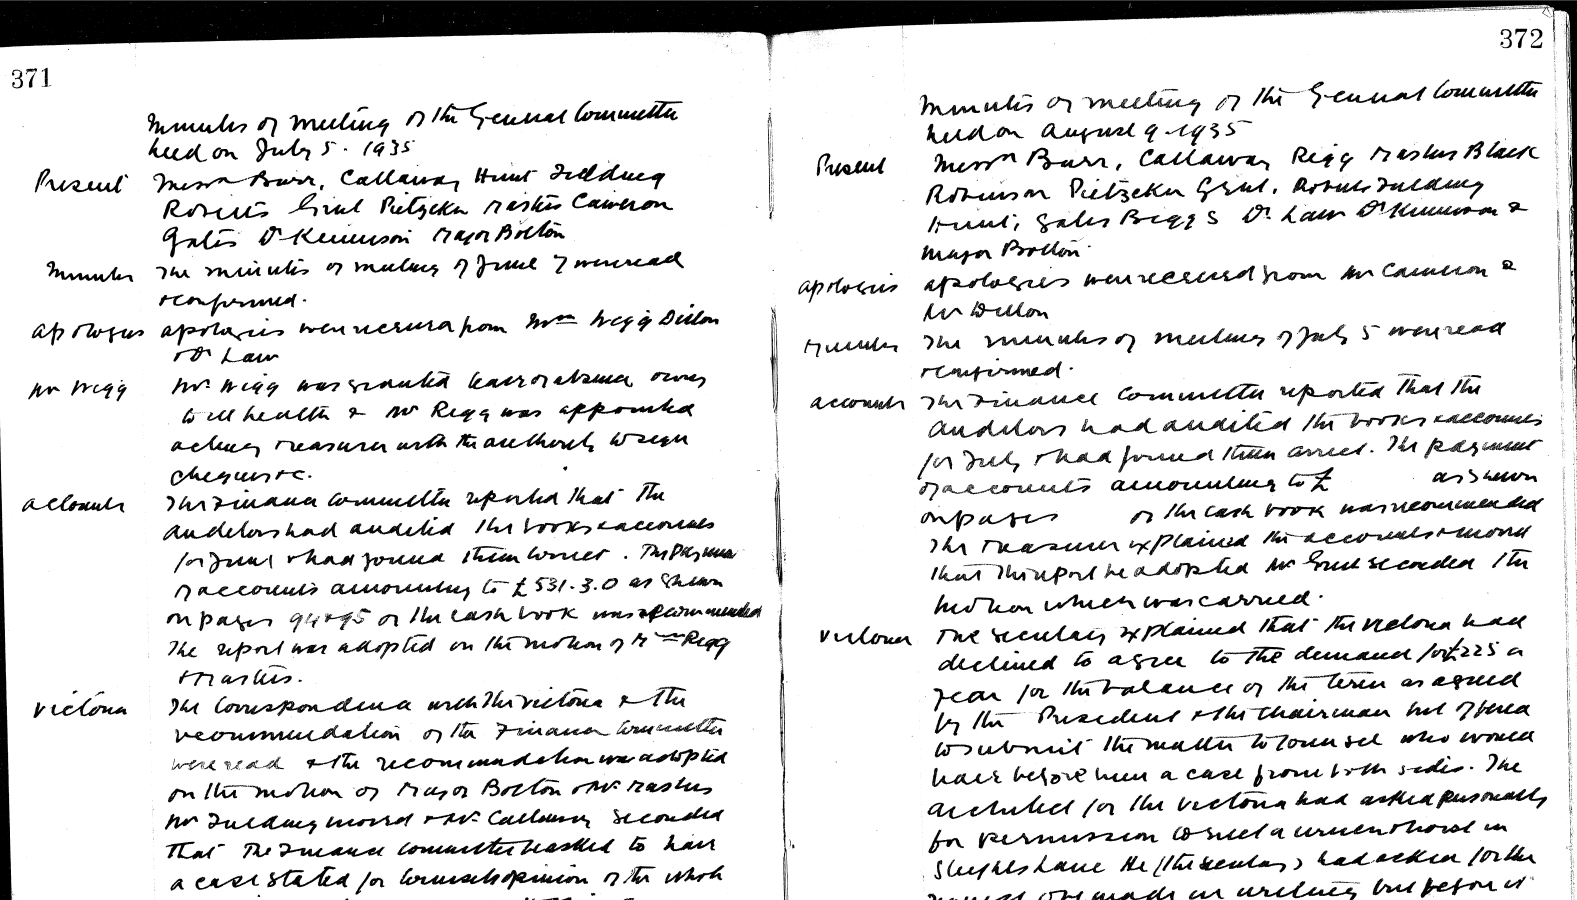 371
Minutes of meeting of the General Committee
held on July 5. 1935
Present Messrs Burr, Callaway Hunt Fielding
Roberts Grut Pietzcker Masters Cameron
Gates Dr Kennerson Major Bolton
Minutes The minutes of meeting of June 7 were read
& confirmed.
Apologies Apologies were received from Messrs Wegg Dillon
& Dr Law
Mr Wegg Mr Wegg was granted leave of absence owing
to ill health & Mr Rigg was appointed
acting Treasurer with the authority to sign
cheques &c.
Accounts The Finance Committee reported that the
auditors had audited the books & accounts
for June & had found them correct. The payment
of accounts amounting to £531.3.0 as shewn
on pages 94 & 95 of the cash book was recommended
The report was adopted on the motion of Messrs Rigg
& Masters.
Victoria The Correspondence with the Victoria & the
recommendation of the Finance Committee
were read & the recommendation was adopted
on the motion of Major Bolton & Mr Masters
Mr Fielding moved & Mr Callaway seconded
that the Finance Committee be asked to have
a case stated for Counsels opinion of the whole
372
Minutes of meeting of the General Committee
held on August 9. 1935
Present Messrs Burr, Callaway Rigg Masters Black
Robinson Pietzcker Grut, Roberts Fielding
Hunt, Gates Beggs Dr Law Dr Kennerson &
Major Bolton
Apologies Apologies were received from Mr Cameron &
Mr Dillon
Minutes The minutes of meeting of July 5 were read
& confirmed.
Accounts The Finance Committee reported that the
auditors had audited the books & accounts
for July & had found them correct. The payment
of accounts amounting to £ as shewn
on pages of the cash book was recommended
The Treasurer explained the accounts & moved
that the report be adopted Mr Grut seconded the
motion which was carried.
Victoria The Secretary explained that the Victoria had
declined to agree to the demand for £225 a
year for the balance of the term as agreed
by the President & the Chairman but offered
to submit the matter to Counsel who would
have before him a case from both sides. The
architect for the Victoria had asked personally
for permission to erect a urinal in
Sleights Lane He (the Secretary) had asked for the
request to be made in writing but before it